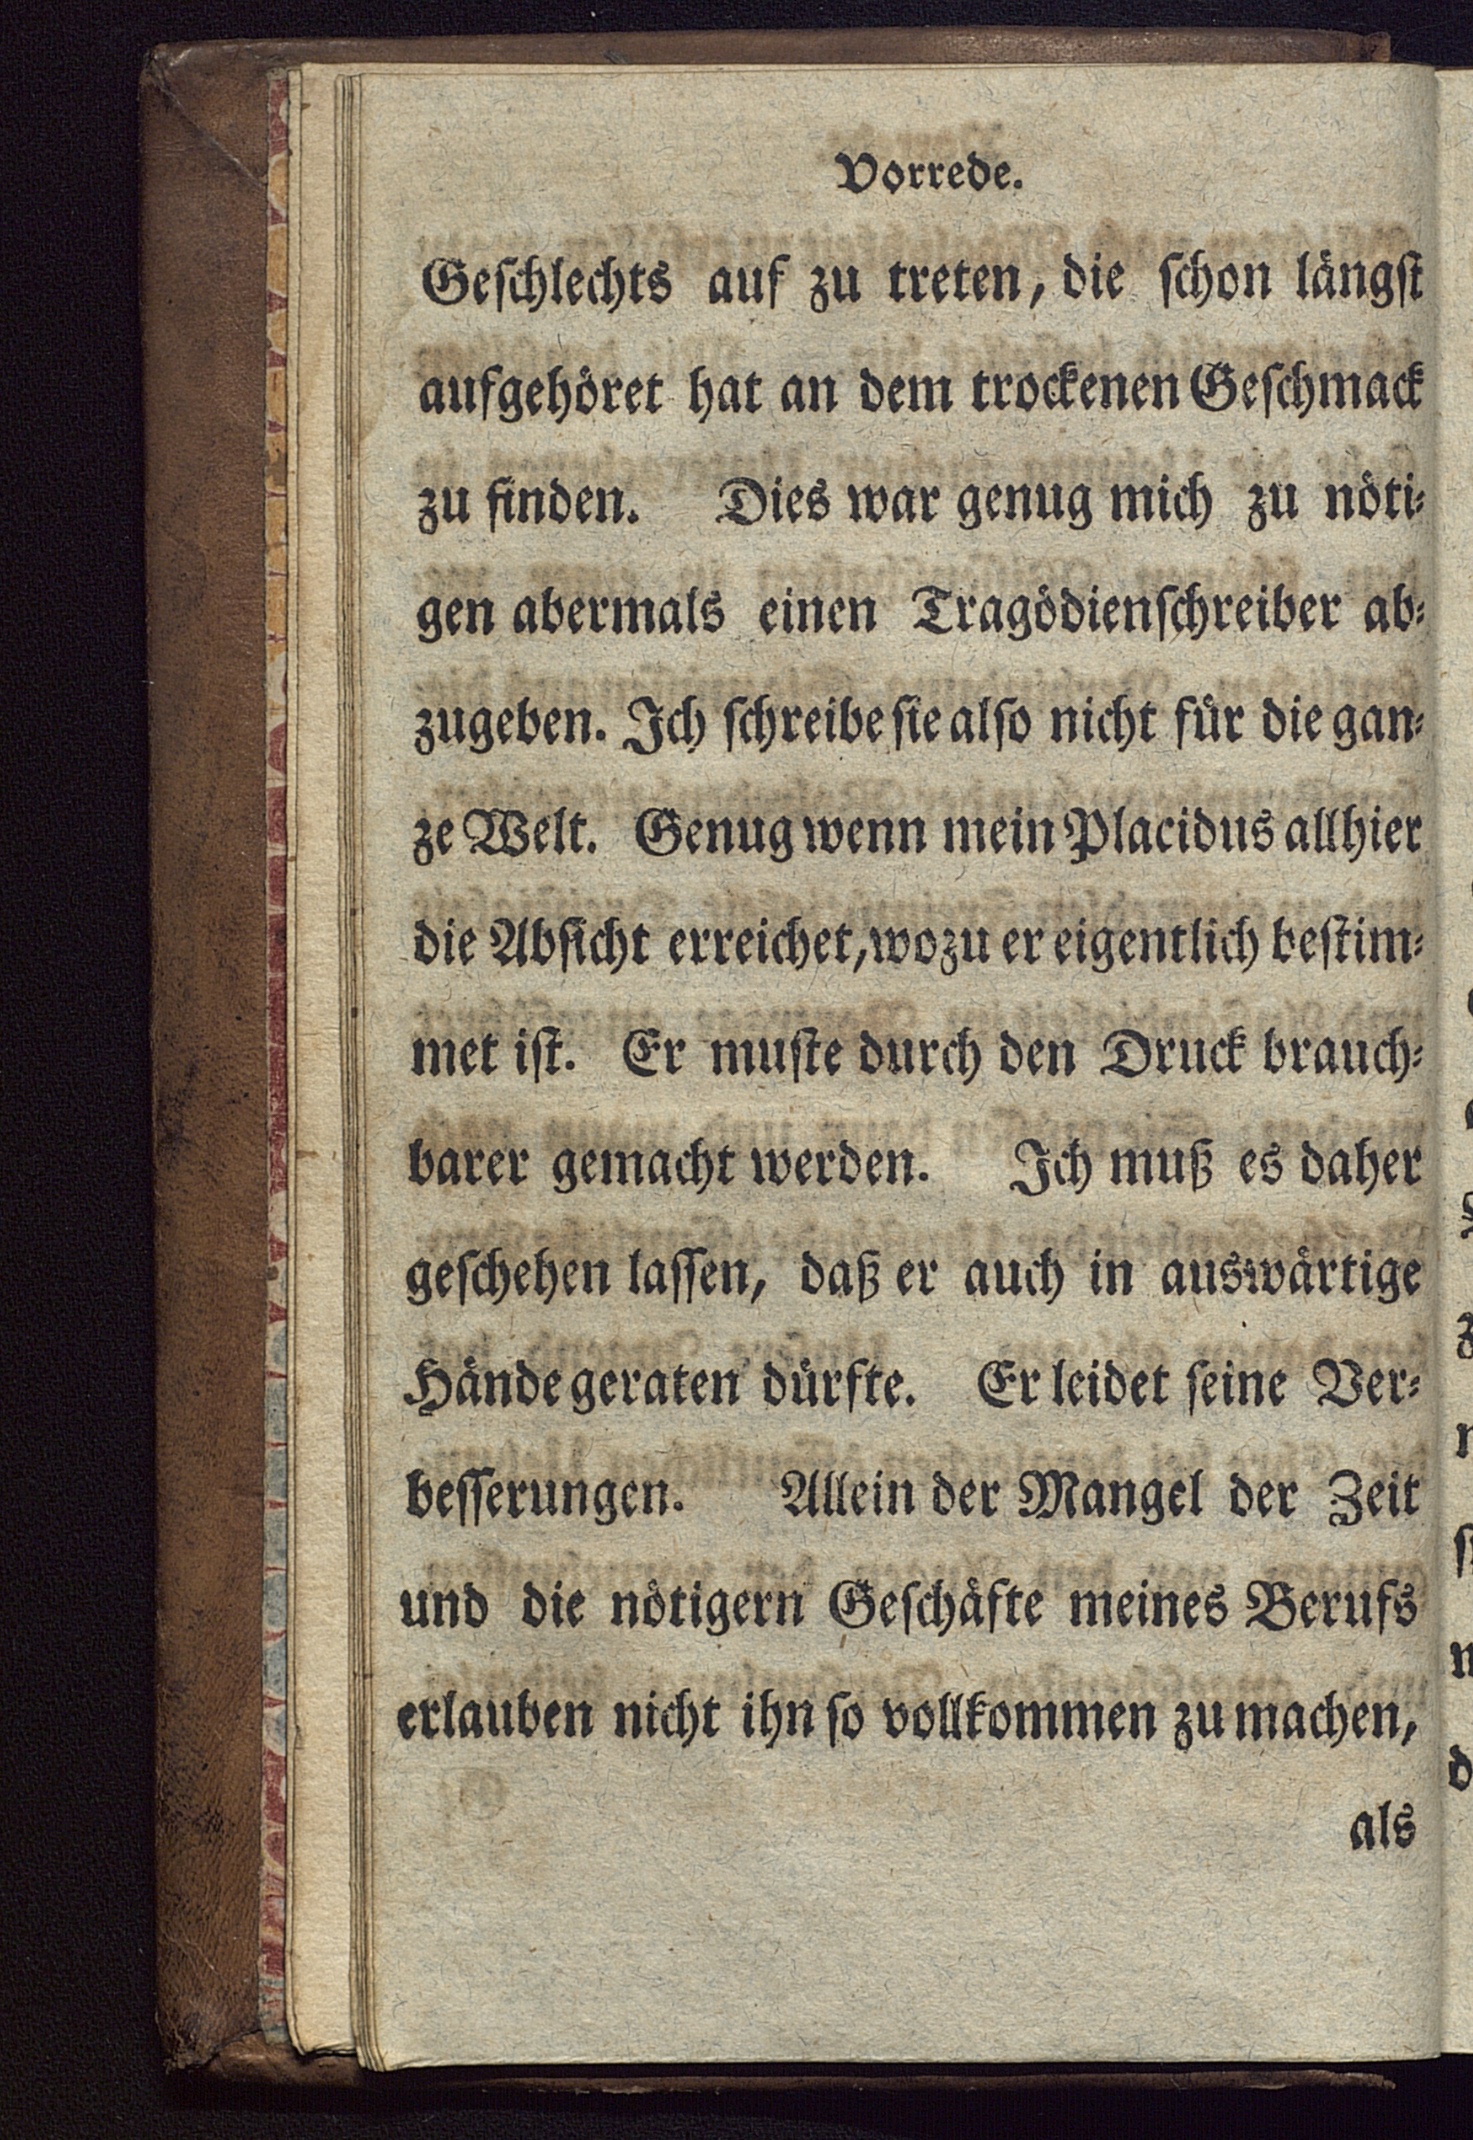 Vorrede.
Geſchlechts auf zu treten, die ſchon längſt
aufgehöret hat an dem trockenen Geſchmack
zu finden. Dies war genug mich zu nöti⸗
gen abermals einen Tragödienſchreiber ab⸗
zugeben. Ich ſchreibe ſie alſo nicht für die gan⸗
ze Welt. Genug wenn mein Placidus allhier
die Abſicht erreichet, wozu er eigentlich beſtim⸗
met iſt. Er muſte durch den Druck brauch⸗
barer gemacht werden. Ich muß es daher
geſchehen laſſen, daß er auch in auswärtige
Hände geraten dürfte. Er leidet ſeine Ver⸗
beſſerungen. Allein der Mangel der Zeit
und die nötigern Geſchäfte meines Berufs
erlauben nicht ihn ſo vollkommen zu machen,
als